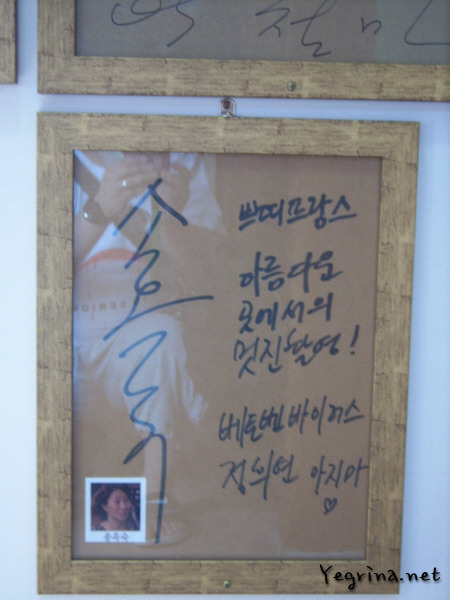 송옥숙
쁘띠프랑스
아름다운
곳에서의
멋진촬영!
베토벤바이러스
정희연 아지마
♡
송옥숙
Yegrina.net